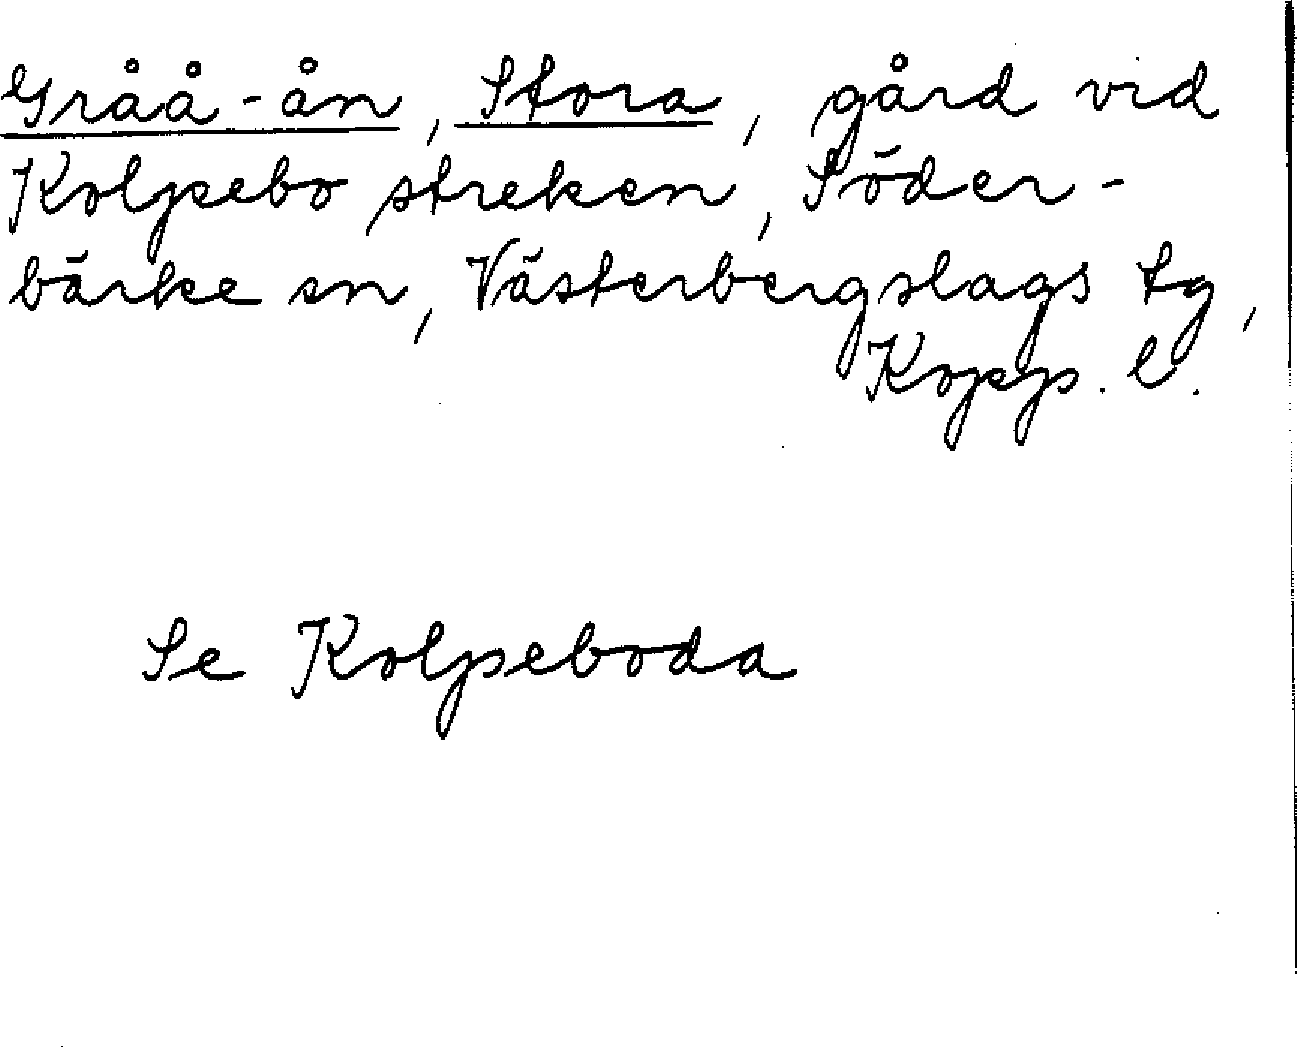 Gråå-ån, Stora, gård vid
Kolpebo streken, Söder-
bärke sn, Västerbergslags tg,
Kopp. l.
Se Kolpeboda